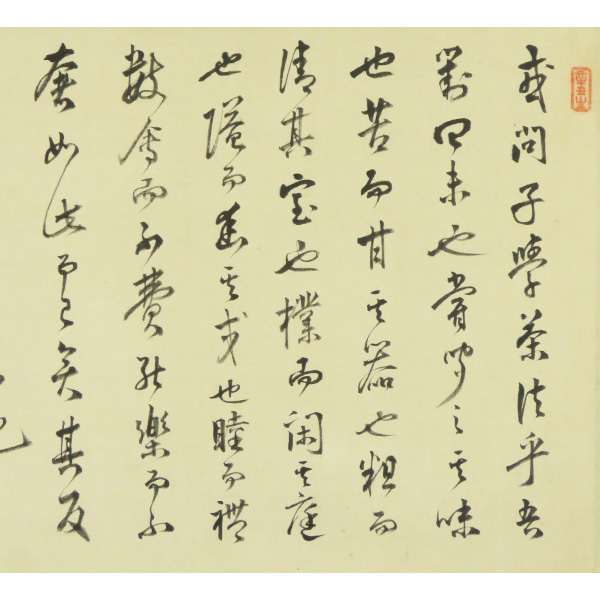 或問子學茶法乎吾
對曰未也嘗聞之其味
也苦而甘其器也粗而
清其室也樸而閑其庭
也隘而其交也睦而禮
數會而不費能樂而不
奢如此而已矣其反